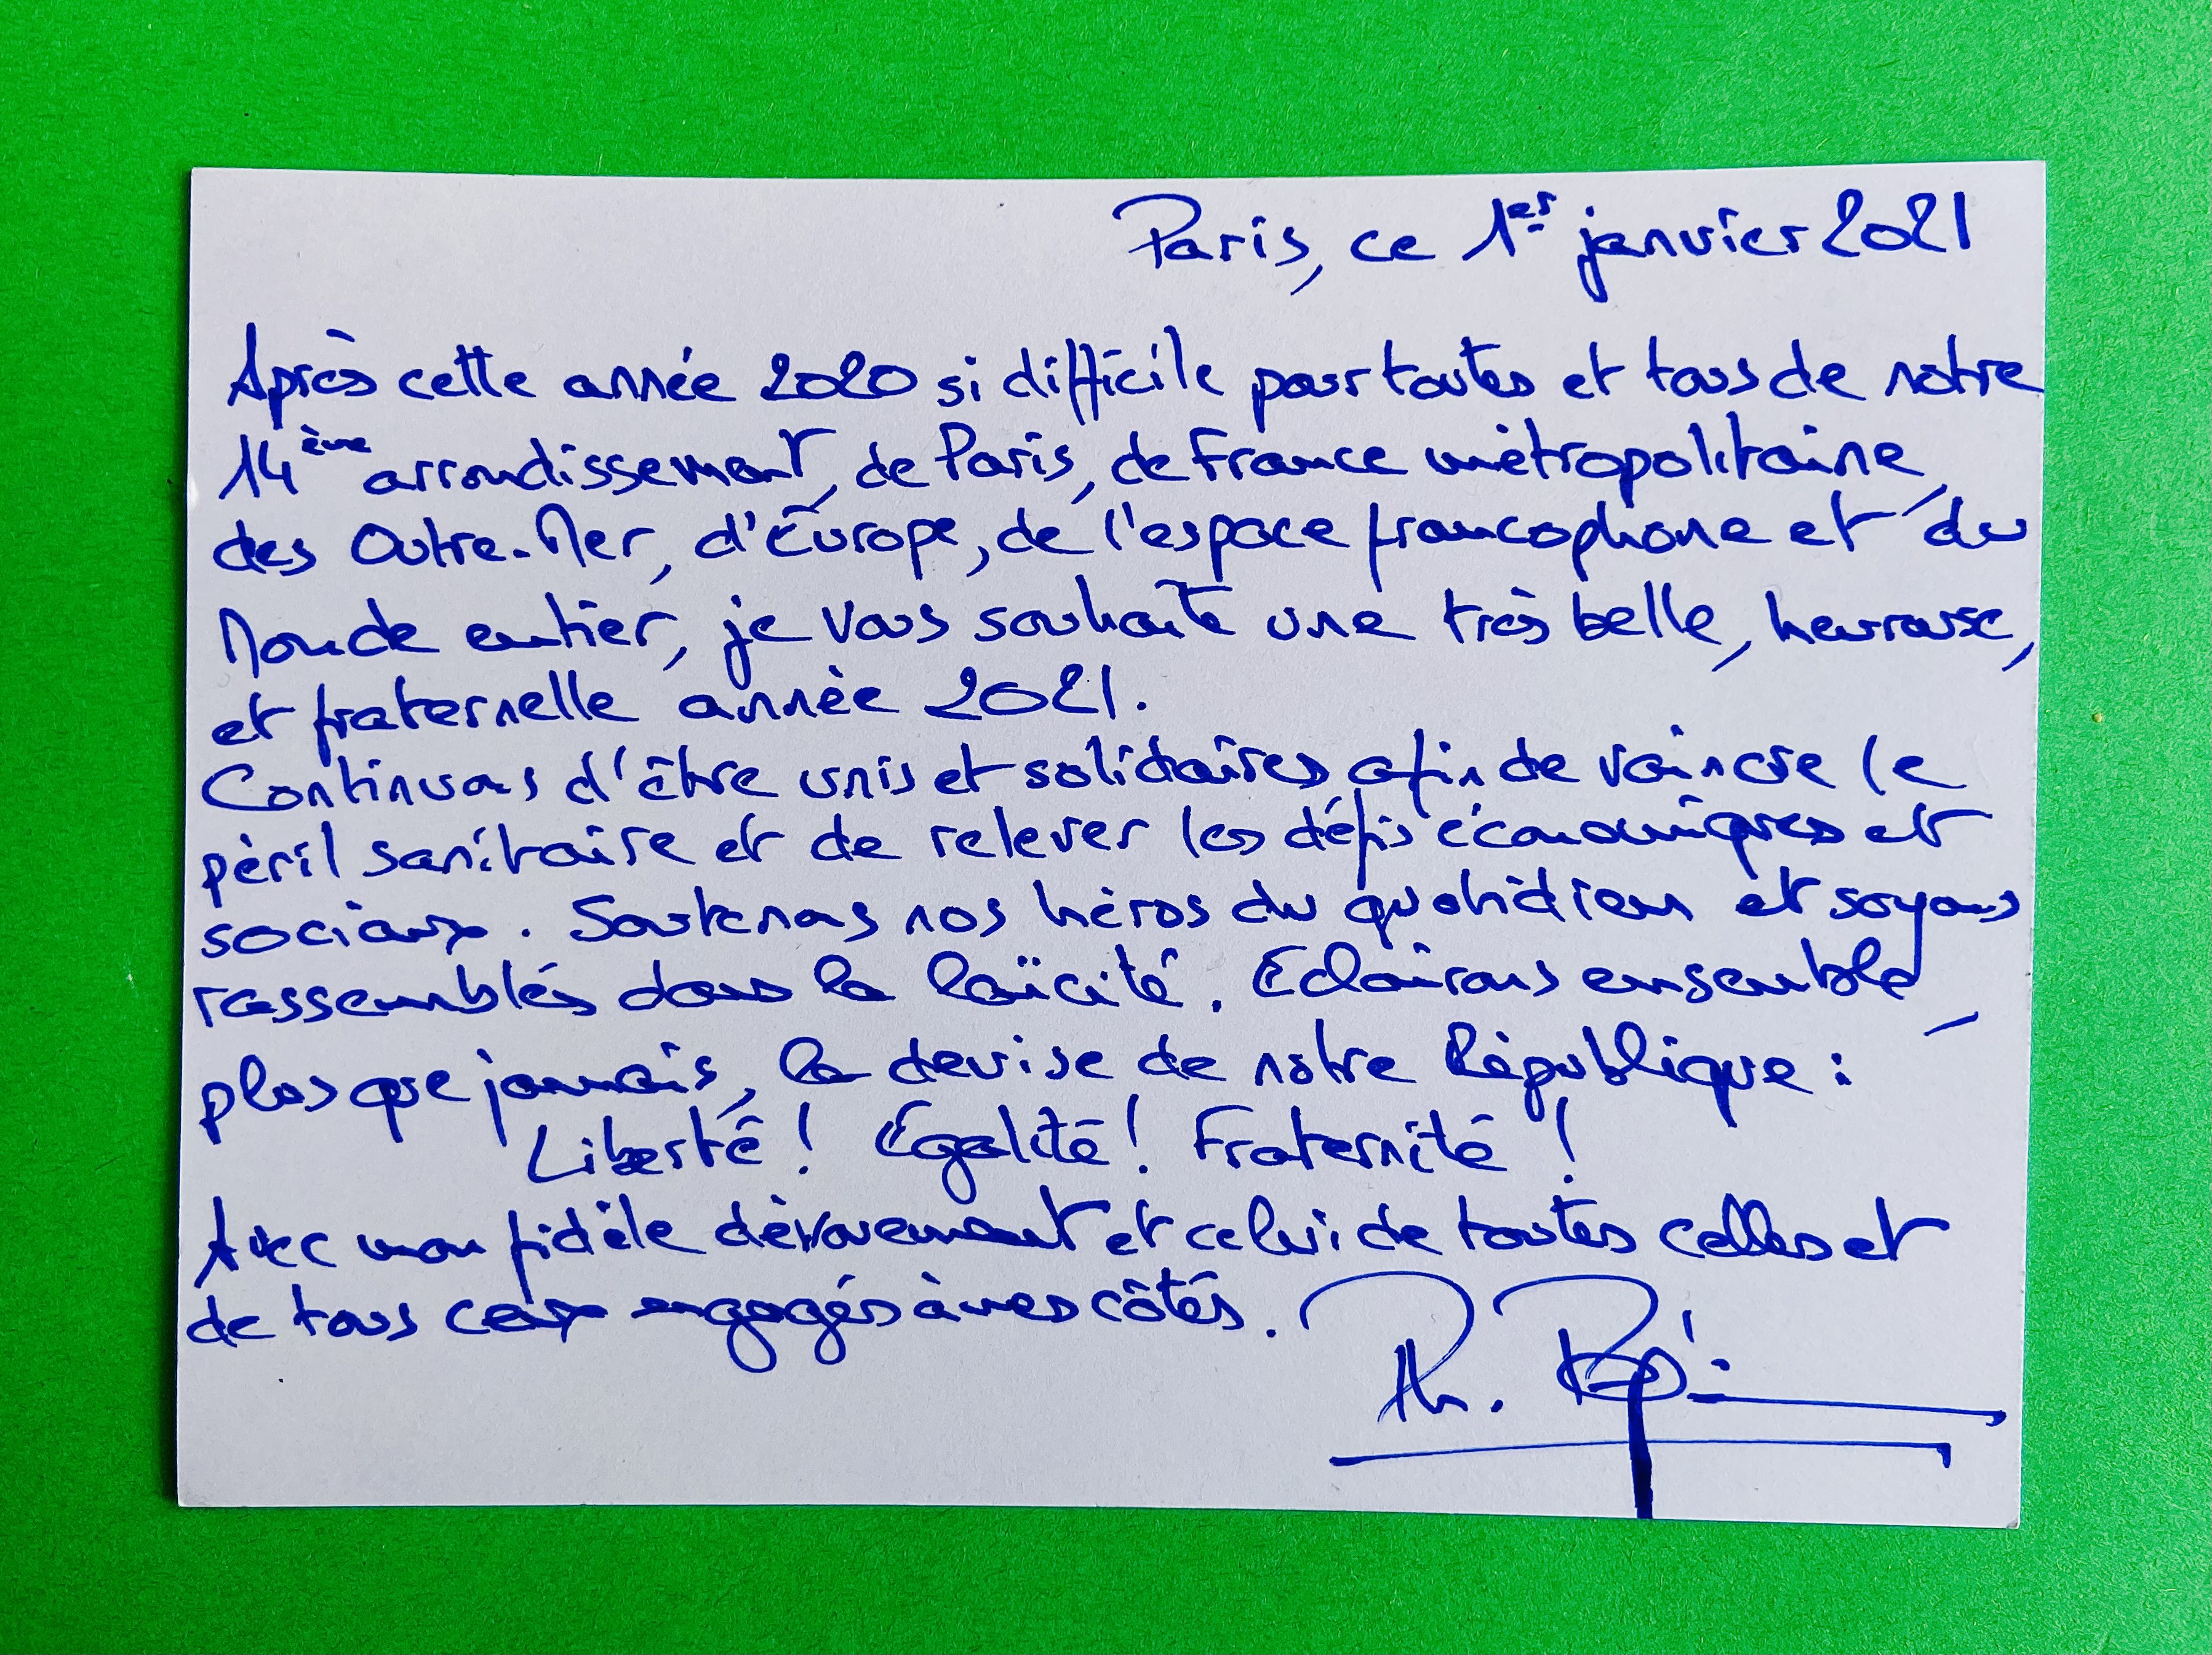 Paris, ce 1er janvier 2021
Après cette année 2020 si difficile pour toutes et tous de notre
14ème arrondissement, de Paris, de France métropolitaine,
des Outre-Mer, d'Europe, de l'espace francophone et du
Monde entier, je vous souhaite une très belle, heureuse,
et fraternelle année 2021.
Continuons d'être unis et solidaires afin de vaincre le
péril sanitaire et de relever les défis économiques et
sociaux. Soutenons nos héros du quotidien et soyons
rassemblés dans la laïcité. Eclairons ensemble,
plus que jamais, la devise de notre République :
Liberté ! Egalité ! Fraternité !
Avec mon fidèle dévouement et celui de toutes celles et
de tous ceux engagés à mes côtés.
Ph.